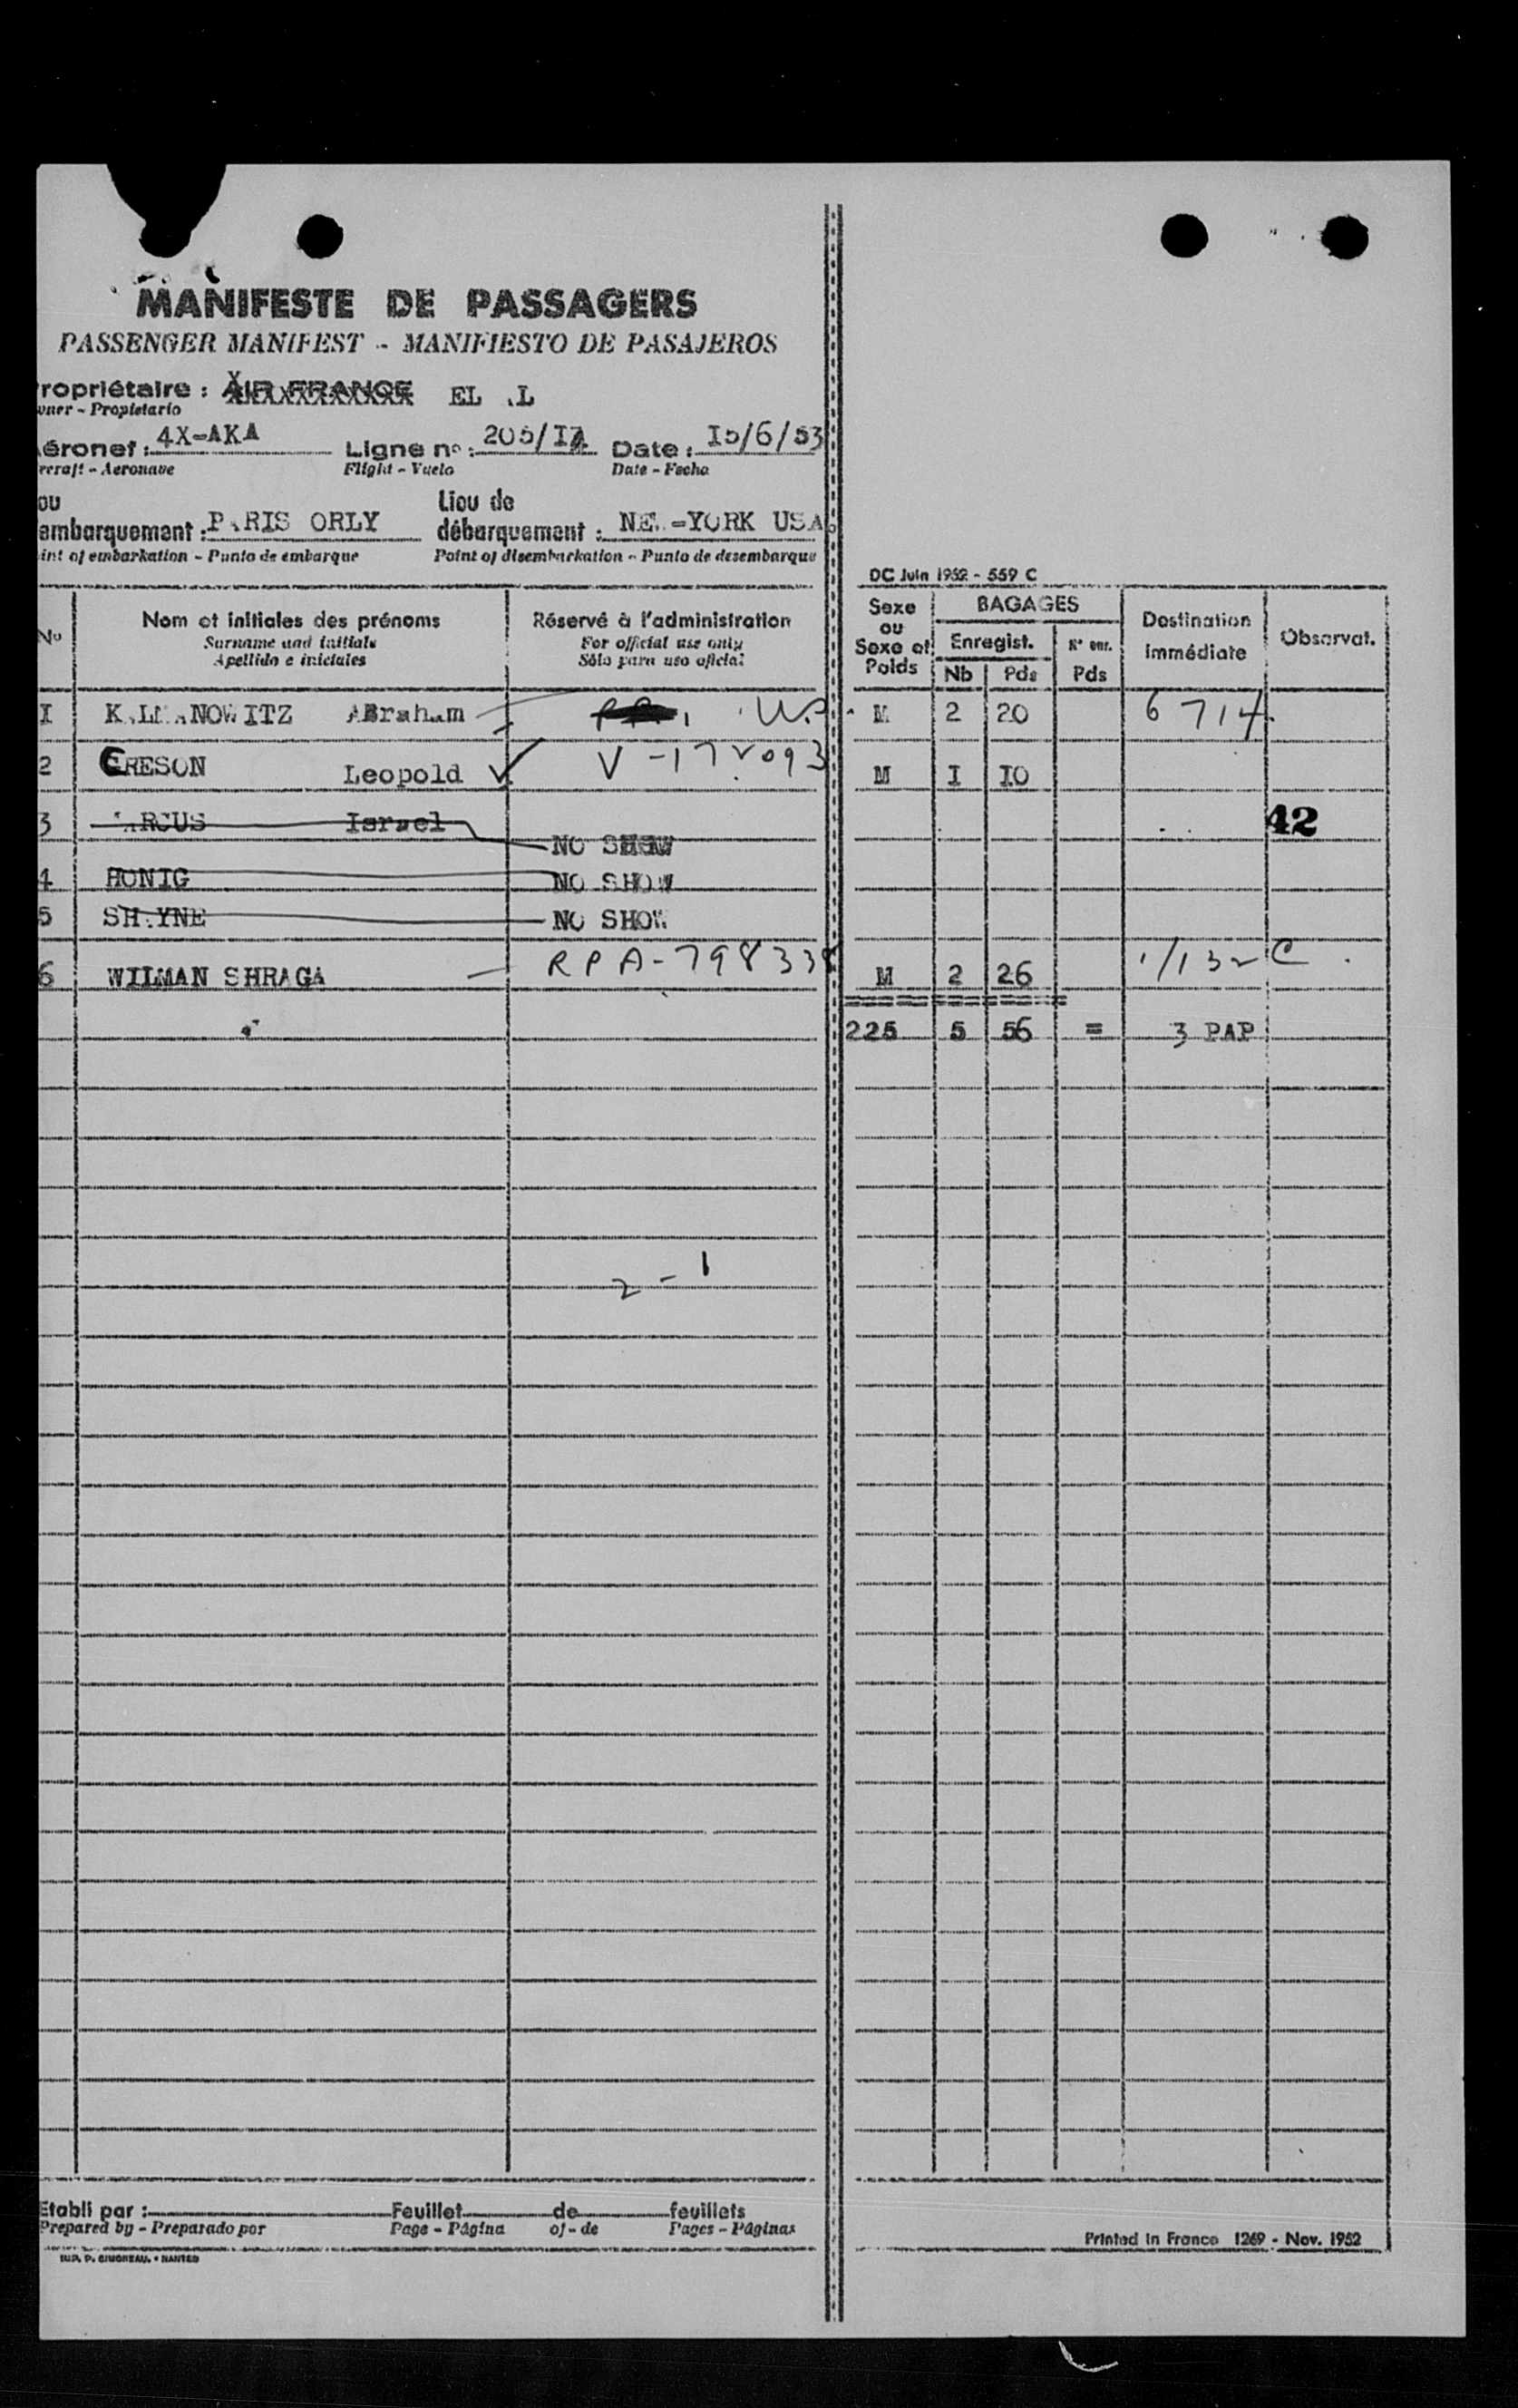 MANIFESTE DE PASSAGERS
PASSENGER MANIFEST - MANIFIESTO DE PASAJEROS
ropriétaire : AIR FRANCE EL .L
wner - Propietario
éronef : 4X-AKA Ligne n° : 205/ Date : I5/6/53
rcraft - Aeronave Flight - Vuelo Date - Fecha
ou Lieu de
embarquement : P.RIS ORLY débarquement : NE.-YORK USA
int of embarkation - Punto de embarque Point of disembarkation - Punto de desembarque
DC Juin 1952 - 559 C
No Nom et initiales des prénoms Réservé à l'administration Sexe ou Sexe et Poids BAGAGES Destination immédiate Observat.
Surname and initials For official use only Enregist. N° enr.
Apellido e iniciales Sólo para uso oficial Nb Pds Pds
I K.LM.NOWITZ ABraham M 2 20 6714
2 ERESON Leopold V-172093 M I IO
3 .RCUS Israel NO SHOW 42
4 HONIG NO SHOW
5 SH.YNE NO SHOW
6 WILMAN SHRAGA RPA-798338 M 2 26 1/132 C
225 5 56 = 3 PAP
2 - 1
Etabli par : Feuillet de feuillets
Prepared by - Preparado por Page - Página of - de Pages - Páginas
Printed in France 1269 - Nov. 1952
IMP. D. GIMOREAU. • NANTES